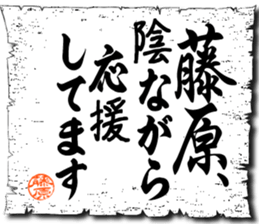 藤原、
陰ながら
応援
してます